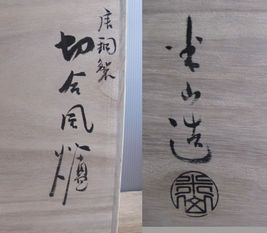 唐銅製
切合風爐
半山造